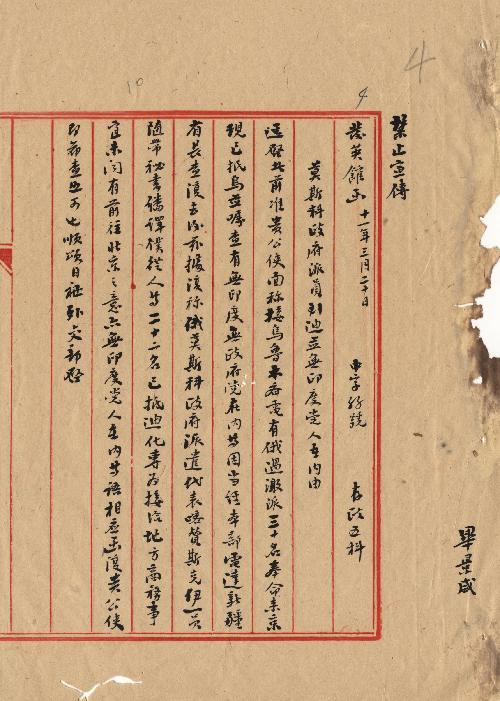 4
10
4
禁止宣傳
發英館函 十一年三月二十日 字 號 存政五科
莫斯科政府派員到迪並無印度党人在内由
逕啓者前准貴公使面称接烏魯木齊電有俄過激派三十名奉命來京
現已抵烏並嘱查有無印度無政府党在内等因当經本部電達新疆
省長查復去後兹據復称俄莫斯科政府派遣代表 贊斯克伊一員
随帶秘書繙譯僕從人等二十二名已抵迪化專为接洽地方商務事
宜未聞有前往北京之意亦無印度党人在内等語相應函復貴公使
即希查照可也順頌日祉外交部啓
畢景咸